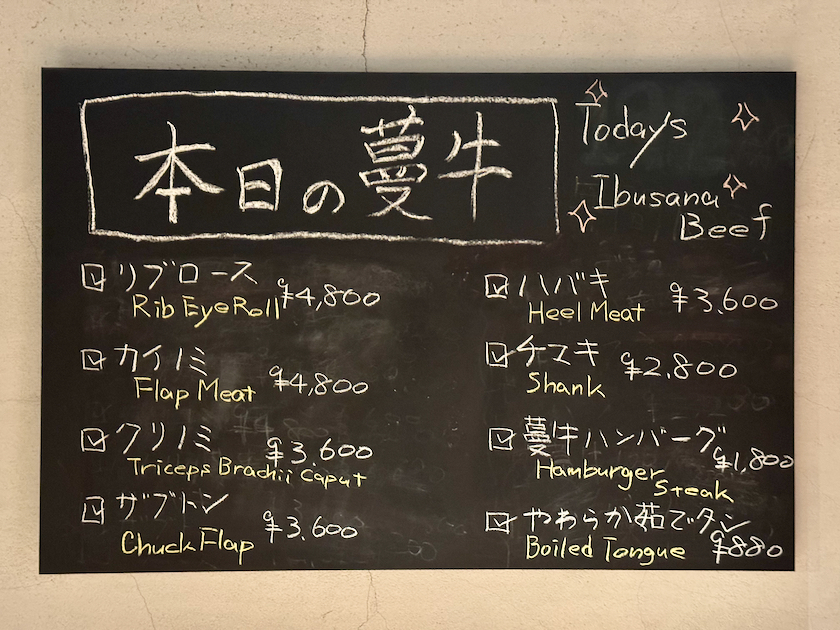 本日の蔓牛
Today's
Ibusana
Beef
リブロース ¥4,800
Rib Eye Roll
カイノミ ¥4,800
Flap Meat
クリノミ ¥3,600
Triceps Brachii Caput
ザブトン ¥3,600
Chuck Flap
ハバキ ¥3,600
Heel Meat
チマキ ¥2,800
Shank
蔓牛ハンバーグ ¥1,800
Hamburger
Steak
やわらか茹でタン ¥880
Boiled Tongue